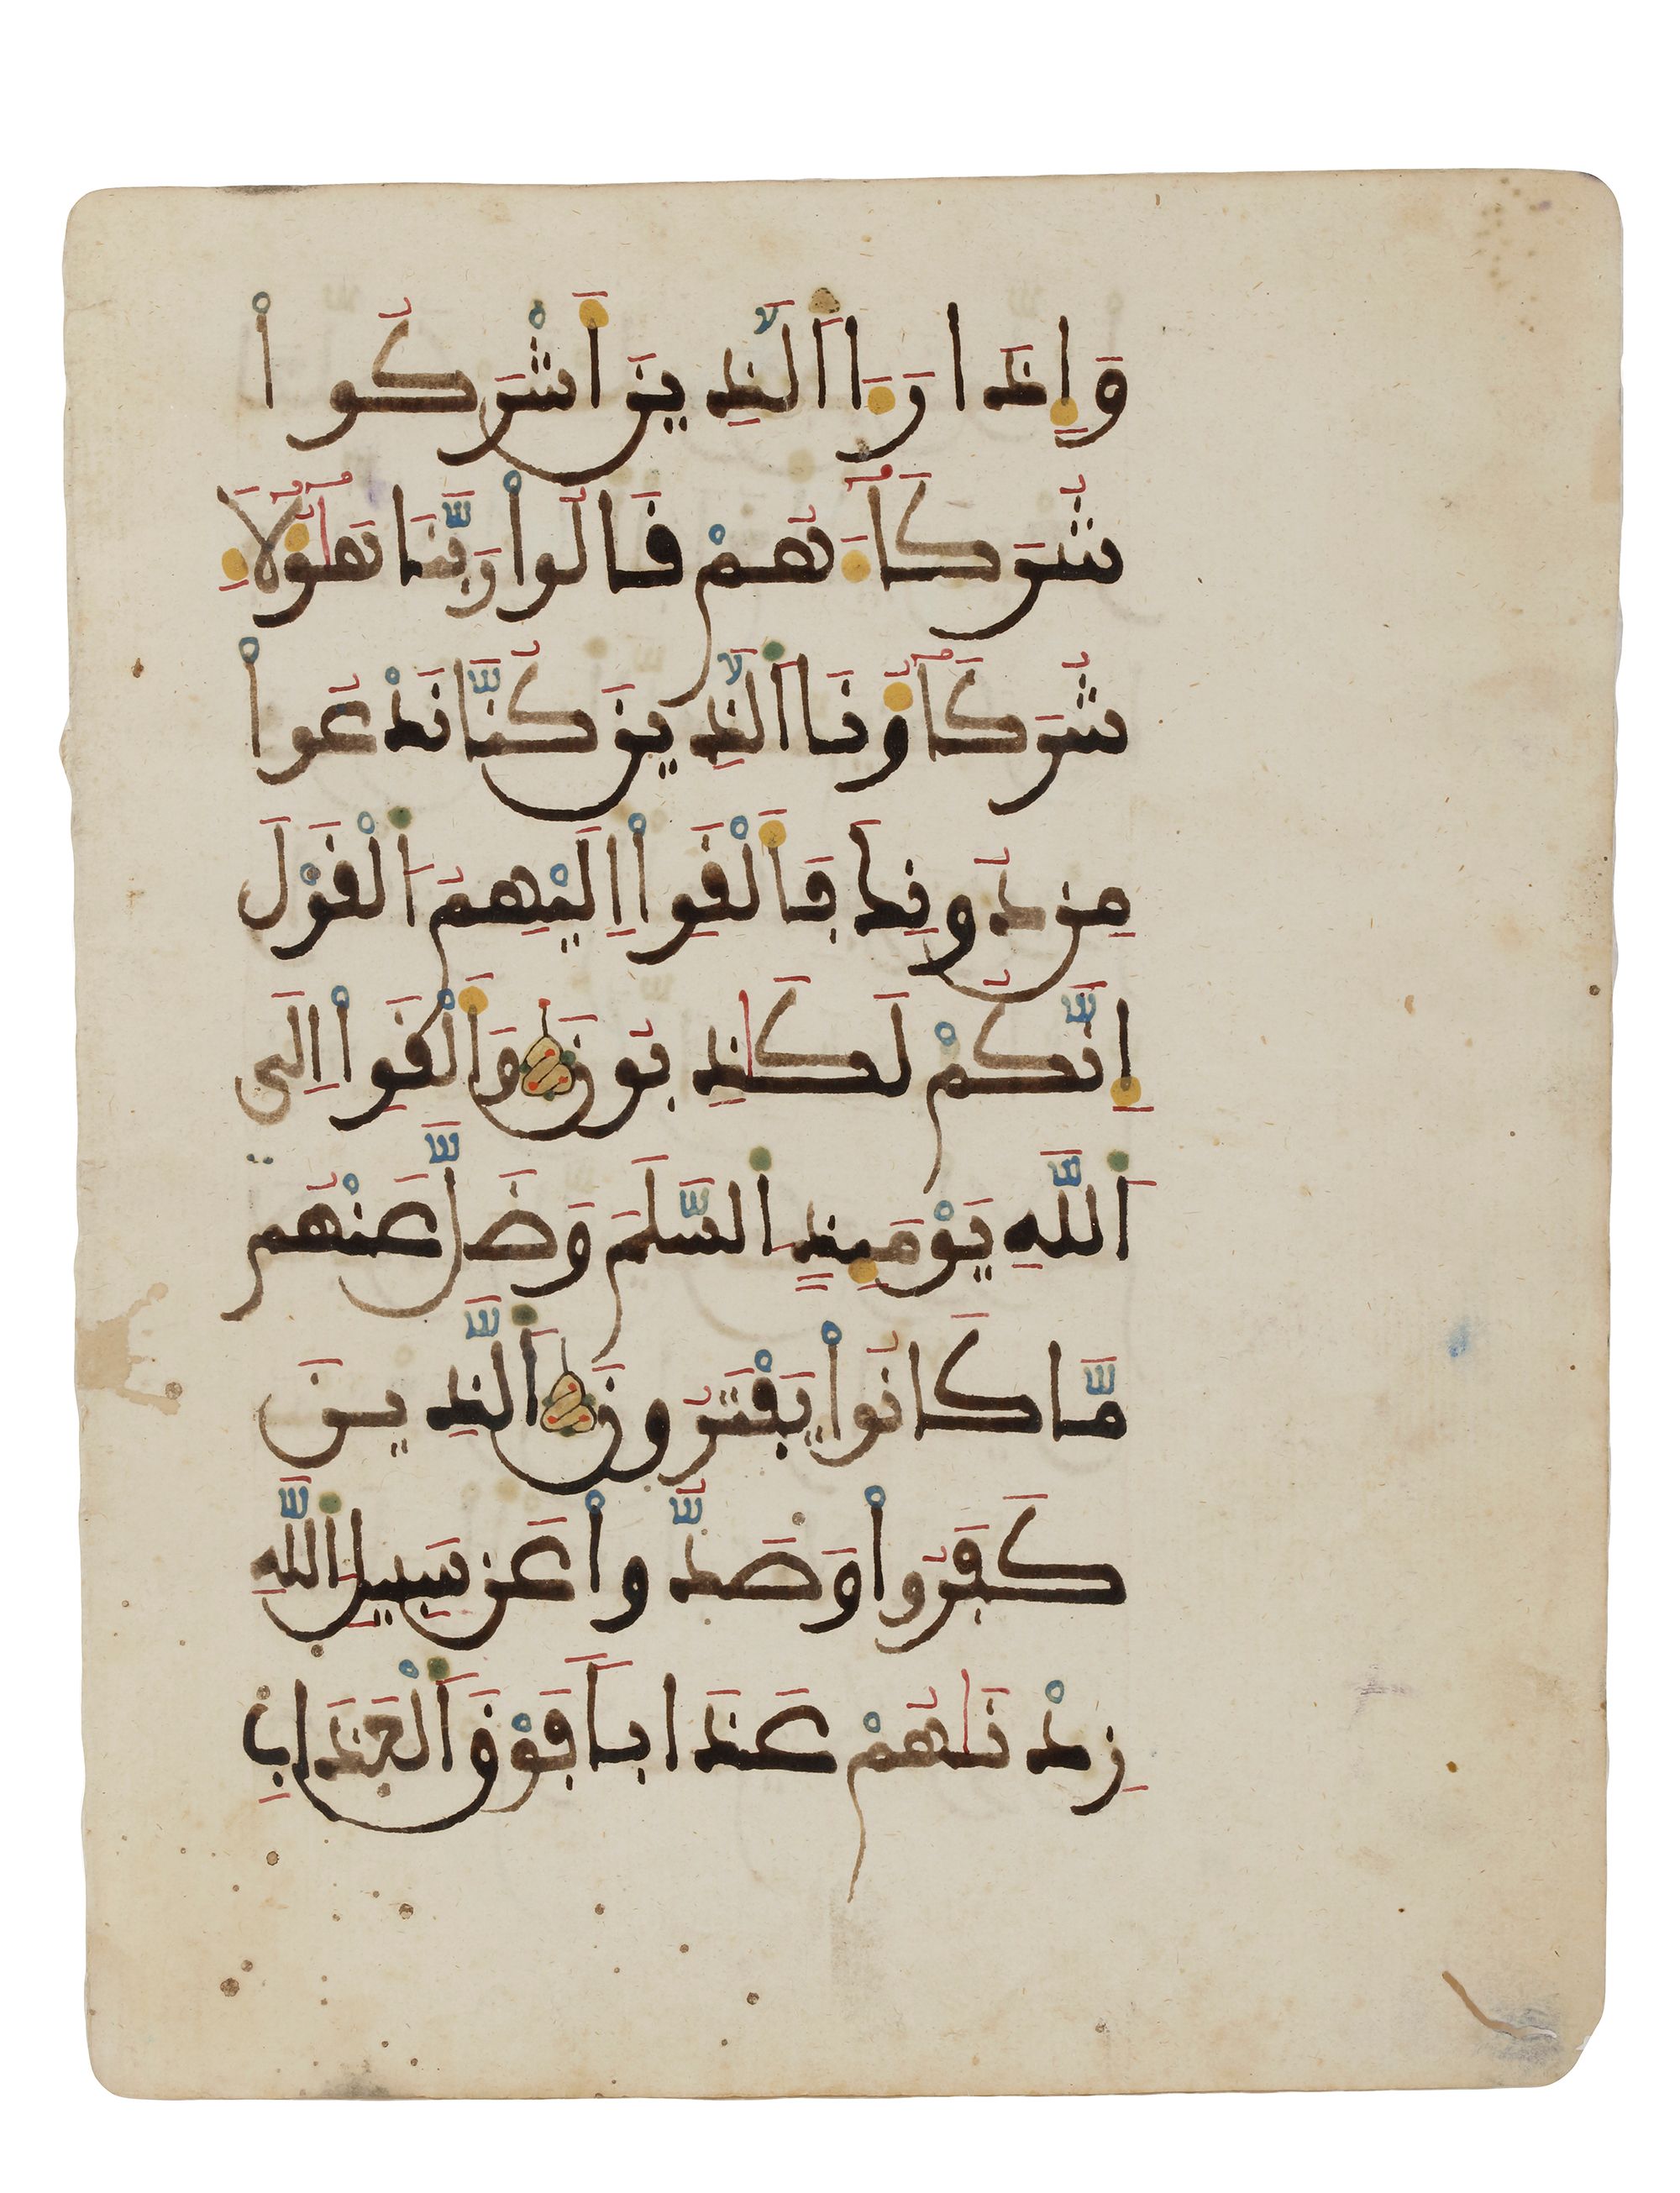 وَإِذَا رَءَا اَ۬لذِينَ أَشْرَكُواْ
شُرَكَآءَهُمْ قَالُواْ رَبَّنَا هَٰٓؤُلَآءِ
شُرَكَآؤُنَا اَ۬لذِينَ كُنَّا نَدْعُواْ
مِن دُونِكَ فَأَلْقَوِاْ اِلَيْهِمُ اُ۬لْقَوْلَ
إِنَّكُمْ لَكَٰذِبُونَ وَأَلْقَوِاْ اِلَى
اَ۬للَّهِ يَوْمَئِذٍ اِ۬لسَّلَمَ وَضَلَّ عَنْهُم
مَّا كَانُواْ يَفْتَرُونَ اَ۬لَّذِينَ
كَفَرُواْ وَصَدُّواْ عَن سَبِيلِ اِ۬للَّهِ
زِدْنَٰهُمْ عَذَابا فَوْقَ اَ۬لْعَذَابِ